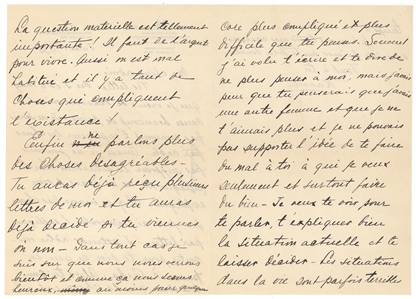 La question matérielle est tellement
importante! Il faut de l'argent
pour vivre. Aussi on est mal
habitué et il y a tant de
choses qui compliquent
l'existance!
Enfin ne parlons plus
des choses desagréables -
tu auras déjà reçu plusieurs
lettres de moi et tu auras
déjà décidé si tu viennes
ou non - Dans tout cas je
suis sur que nous nous verrons
bientôt et comme ça nous serons
heureux, au moins pour quelque
core plus compliqué et plus
difficile que tu penses. Souvent
j'ai voulu t'écrire et te dire de
ne plus penser à moi, mais j'avais
peur que tu penserais que j'avais
une autre femme et que je ne
t'aimais plus et je ne pouvais
pas supporter l'idée de te faire
du mal à toi à qui je veux
seulement et surtout faire
du bien - Je veux te voir, pour
te parler, t'expliquer bien
la situation actuelle et te
laisser décider - Les situations
dans la vie sont parfois terribles